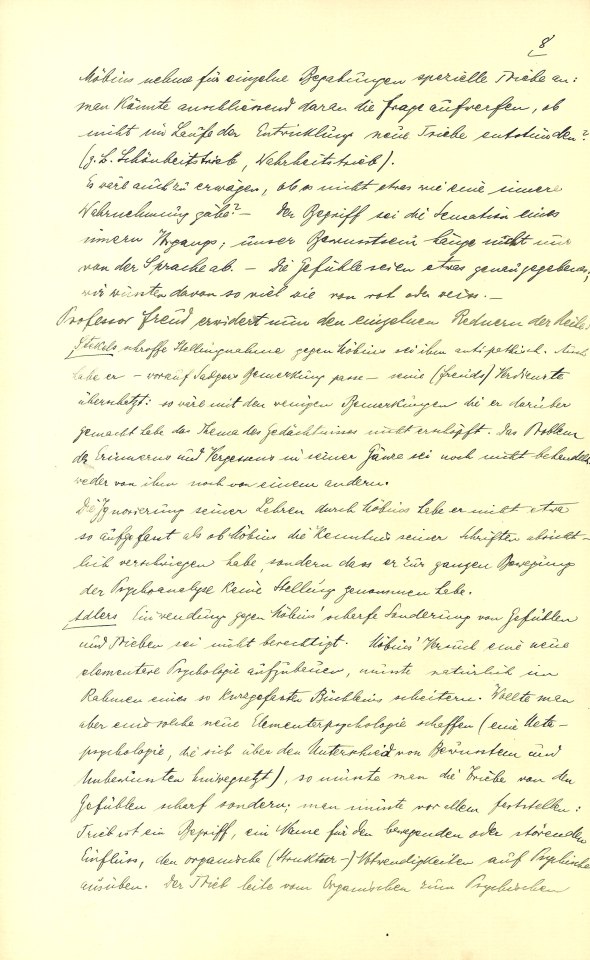 8
Möbius nehme für einzelne Begabungen spezielle Triebe an:
man könnte anschliessend daran die Frage aufwerfen, ob
nicht im Laufe der Entwicklung neue Triebe entstünden?
(z.B. Schönheitstrieb, Wahrheitstrieb).
Es wäre auch zu erwägen, ob es nicht etwas wie eine innere
Wahrnehmung gäbe? — Der Begriff sei die Sensation eines
innern Vorgangs; unser Bewusstsein hänge nicht nur
von der Sprache ab. — Die Gefühle seien etwas genau gegebenes;
wir wüssten davon so viel wie von rot oder weiss. —
Professor Freud erwidert nun den einzelnen Rednern der Reihe
Stekels schroffe Stellungnahme gegen Möbius sei ihm antipathisch. Auch
habe er — worauf Sadgers Bemerkung passe — seine (Freuds) Verdienste
überschätzt: so wäre mit den wenigen Bemerkungen die er darüber
gemacht habe das Thema des Gedächtnisses nicht erschöpft. Das Problem
des Erinnerns und Vergessens in seiner Gänze sei noch nicht behandelt
weder von ihm noch von einem andern.
Die Ignorierung seiner Lehren durch Möbius habe er nicht etwa
so aufgefasst als ob Möbius die Kenntnis seiner Schriften absicht-
lich verschwiegen habe, sondern dass er zur ganzen Bewegung
der Psychoanalyse keine Stellung genommen habe.
Adlers Einwendung gegen Möbius' scharfe Sonderung von Gefühlen
und Trieben sei nicht berechtigt. Möbius' Versuch eine neue
elementare Psychologie aufzubauen, musste natürlich im
Rahmen eines so kurzgefassten Büchleins scheitern. Wollte man
aber eine solche neue Elementarpsychologie schaffen (eine Meta-
psychologie, die sich über den Unterschied von Bewusstem und
Unbewussten hinwegsetzt), so müsste man die Triebe von den
Gefühlen scharf sondern; man müsste vor allem feststellen:
Trieb ist ein Begriff, ein Name für den bewegenden oder störenden
Einfluss, den organische (Struktur-) Notwendigkeiten auf Psychische
ausüben. Der Trieb leite vom Organischen zum Psychischen